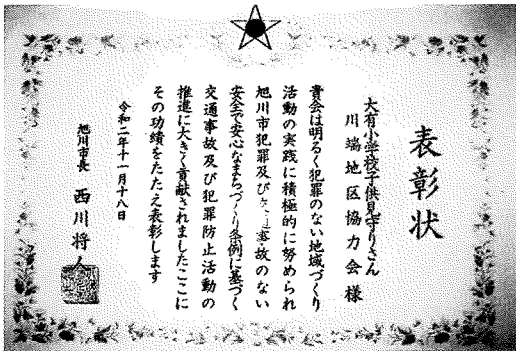 表彰状
大有小学校子供見守りさん
川端地区協力会 様
貴会は明るく犯罪のない地域づくり
活動の実践に積極的に努められ
旭川市犯罪及び交通事故のない
安全で安心なまちづくり条例に基づく
交通事故及び犯罪防止活動の
推進に大きく貢献されましたここに
その功績をたたえ表彰します
令和二年十一月十八日
旭川市長 西川将人